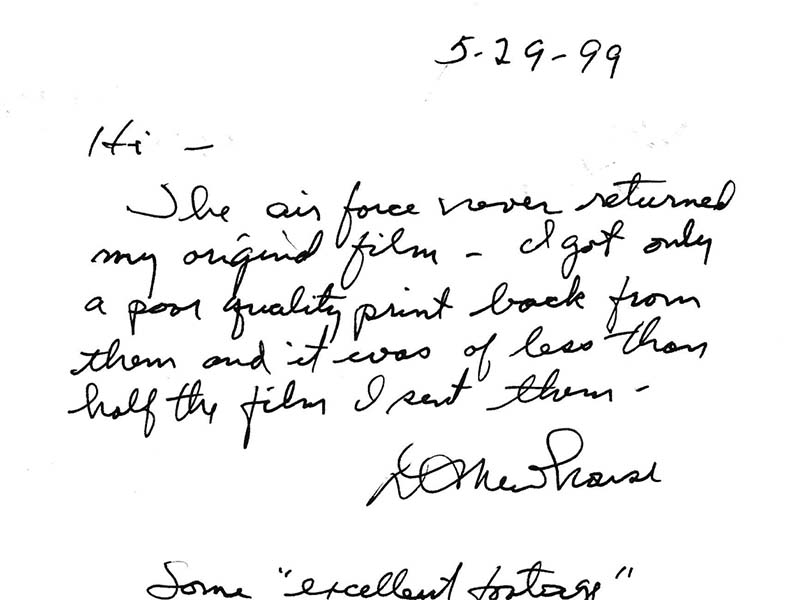 5-29-99
Hi -
The air force never returned
my original film - I got only
a poor quality print back from
them and it was of less than
half the film I sent them -
DC Newhouse
Some "excellent footage"